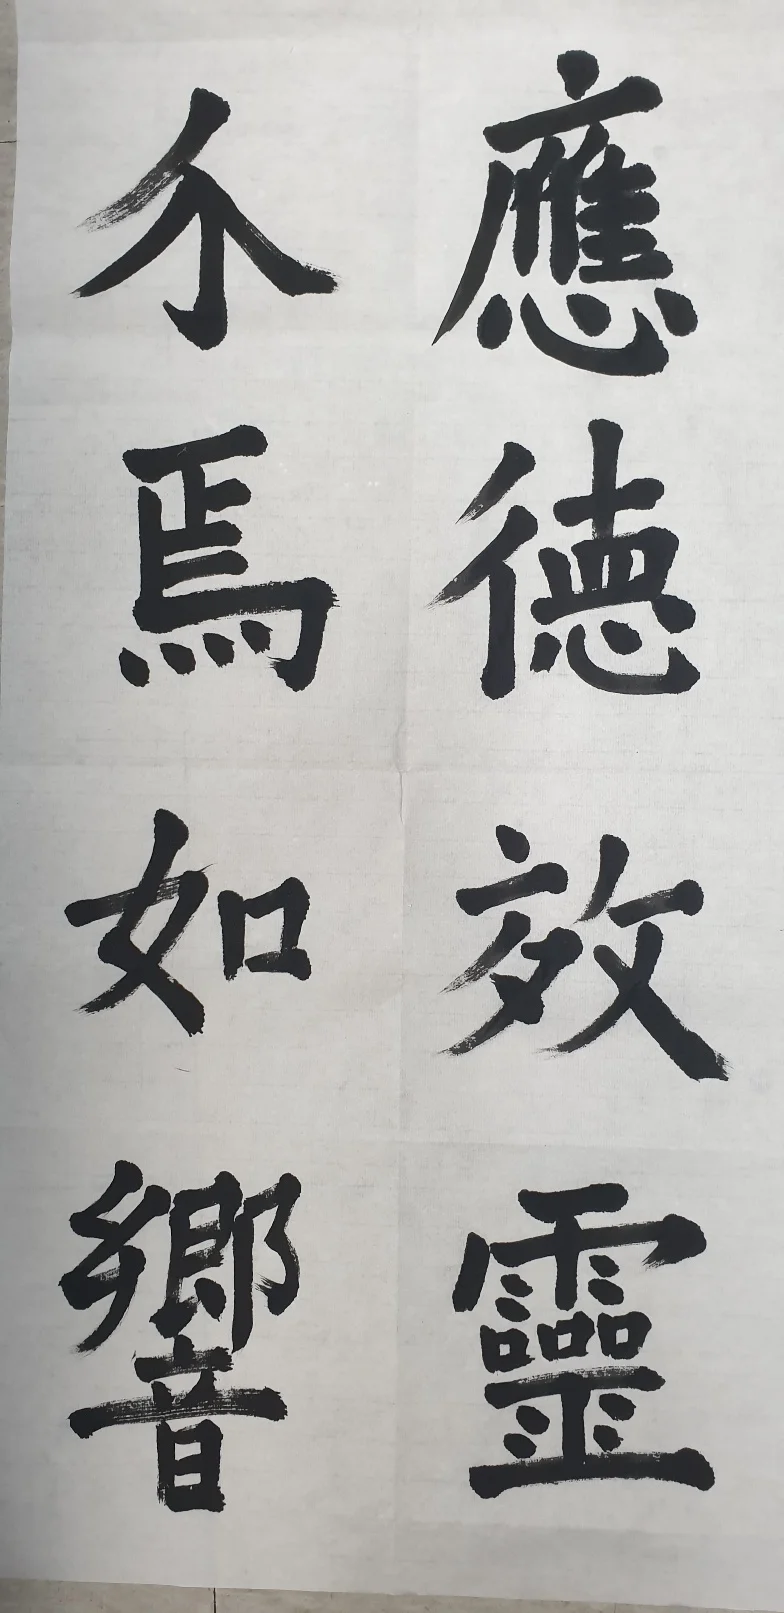 應德效靈
介焉如響